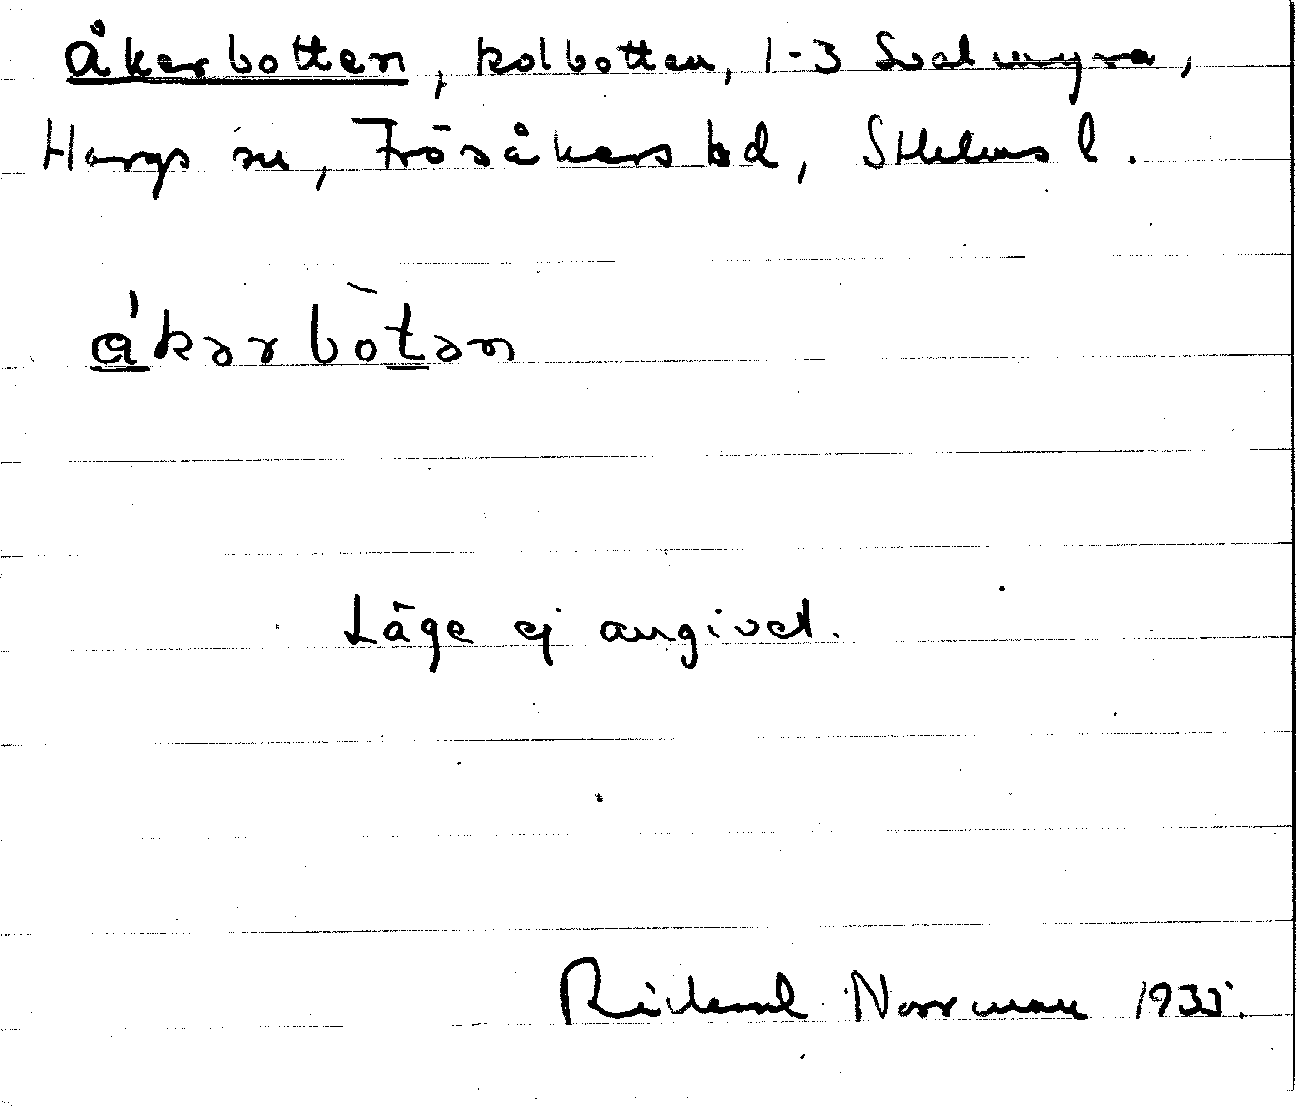 Åkerbotten, kolbotten, 1-3 Svalmyra,
Hargs sn, Frösåkers hd, Sthlms l.
åkərbòtən
Läge ej angivet.
Rickard Norrman 1935.